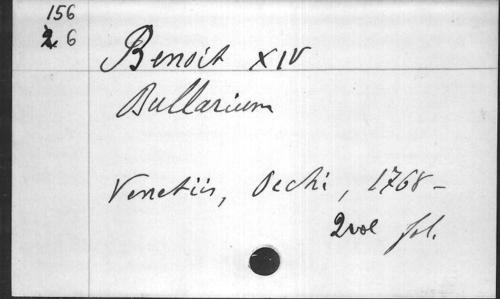 156
2 6
Benoit XIV
Bullarium
Venetiis, Occhi, 1768-
2 vol fol.